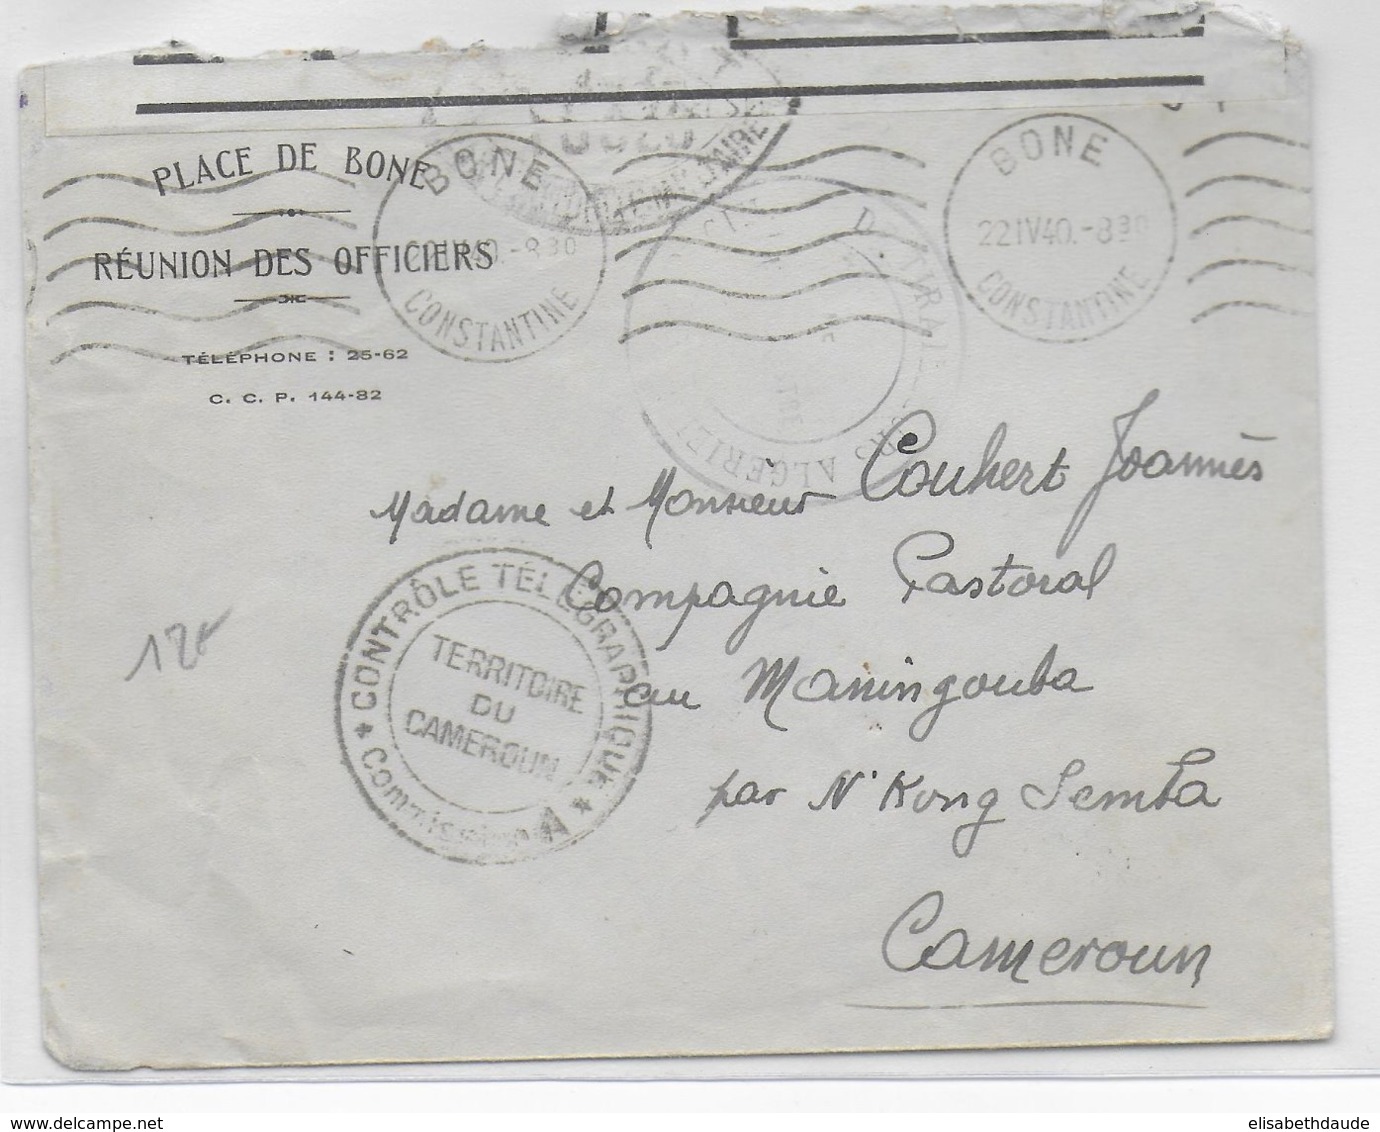 PLACE DE BONE
RÉUNION DES OFFICIERS
TÉLÉPHONE : 25-62
C. C. P. 144-82
BONE
-830
CONSTANTINE
BONE
22 IV 40.-830
CONSTANTINE
Madame et Monsieur Couhert Joannès
Compagnie Pastoral
au Maningouba
par N'Kong Semba
Cameroun
CONTRÔLE TÉLÉGRAPHIQUE
TERRITOIRE
DU
CAMEROUN
* Commission A *
12€
www.delcampe.net
elisabethdaude